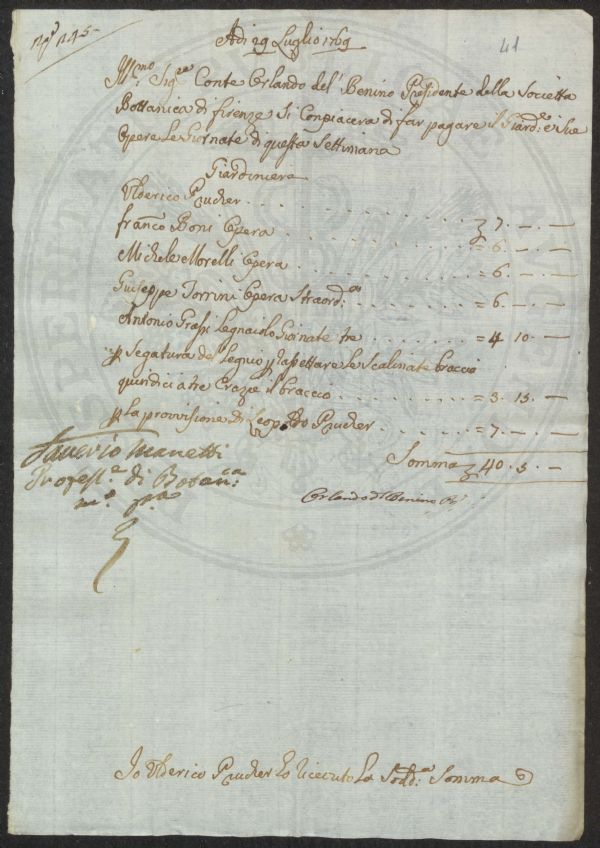 N.º 225
41
Adi 29 Luglio 1769
Ill.mo Sig.re Conte Orlando del' Benino Presidente della Socetta
Bottanica di firenze Si Conpiacera di far pagare il Giard.re e Sue
Opere Le Giornate di questa Settimana
Giardiniere
Ulderico Prucher . . . . . . . . . 7 . — . —
franco Boni Opera . . . . . . . . = 6 . — . —
Michele Morelli Opera . . . . . . . = 6 . — . —
Giuseppe Torrini Opera Straord.ria . . . . . . = 6 . — . —
Antonio Grassi Legnaiolo Giornate tre . . . . . = 4 . 10 . —
p Segatura del Legnio p rassettare Le Scalinate braccio
quindici a tre Crazie il braccio . . . . . = 3 . 15 . —
p La provvisione di Leopoldo Prucher . . . . = 7 . — . —
Somma 40 . 5 . —
Saverio Manetti
Profess.e di Botan.ca
m.o p.a
Orlando del Benino
Io Ulderico Prucher Ho riceuto La Sodd.a Somma